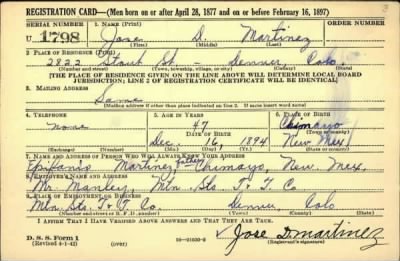 REGISTRATION CARD—(Men born on or after April 28, 1877 and on or before February 16, 1897)
SERIAL NUMBER 1. NAME (Print)
U 1798 Jose D. Martinez
(First) (Middle) (Last)
2. PLACE OF RESIDENCE (Print)
2822 Stout St. - Denver Colo.
(Number and street) (Town, township, village, or city) (County) (State)
[THE PLACE OF RESIDENCE GIVEN ON THE LINE ABOVE WILL DETERMINE LOCAL BOARD
JURISDICTION; LINE 2 OF REGISTRATION CERTIFICATE WILL BE IDENTICAL]
3. MAILING ADDRESS
Same
[Mailing address if other than place indicated on line 2. If same insert word same]
4. TELEPHONE 5. AGE IN YEARS 6. PLACE OF BIRTH
none 47 Chimayo
DATE OF BIRTH (Town or county)
Dec. 16, 1894 New Mex
(Exchange) (Number) (Mo.) (Day) (Yr.) (State or country)
7. NAME AND ADDRESS OF PERSON WHO WILL ALWAYS KNOW YOUR ADDRESS
Epifanio Martinez father - Chimayo New Mex.
8. EMPLOYER'S NAME AND ADDRESS
Mr. Manley, Mtn. Sts. T. & T. Co
9. PLACE OF EMPLOYMENT OR BUSINESS
Mtn. Sts. T & T Co. Denver, Colo
(Number and street or R. F. D. number) (Town) (County) (State)
I AFFIRM THAT I HAVE VERIFIED ABOVE ANSWERS AND THAT THEY ARE TRUE.
D. S. S. Form 1
(Revised 4-1-42) (over) 16—21630-2 Jose D Martinez
(Registrant's signature)